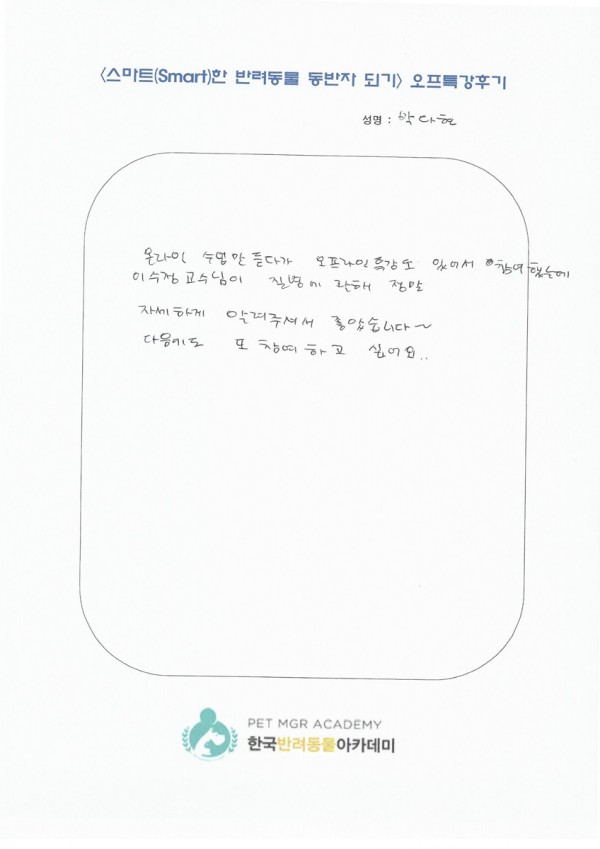 <스마트(Smart)한 반려동물 동반자 되기> 오프특강후기
성명 : 박다현
온라인 수업만 듣다가 오프라인특강도 있어서 참여했는데
이수정교수님이 질병에 관해 정말
자세하게 알려주셔서 좋았습니다~
다음에도 또 참여하고 싶어요..
PET MGR ACADEMY
한국반려동물아카데미